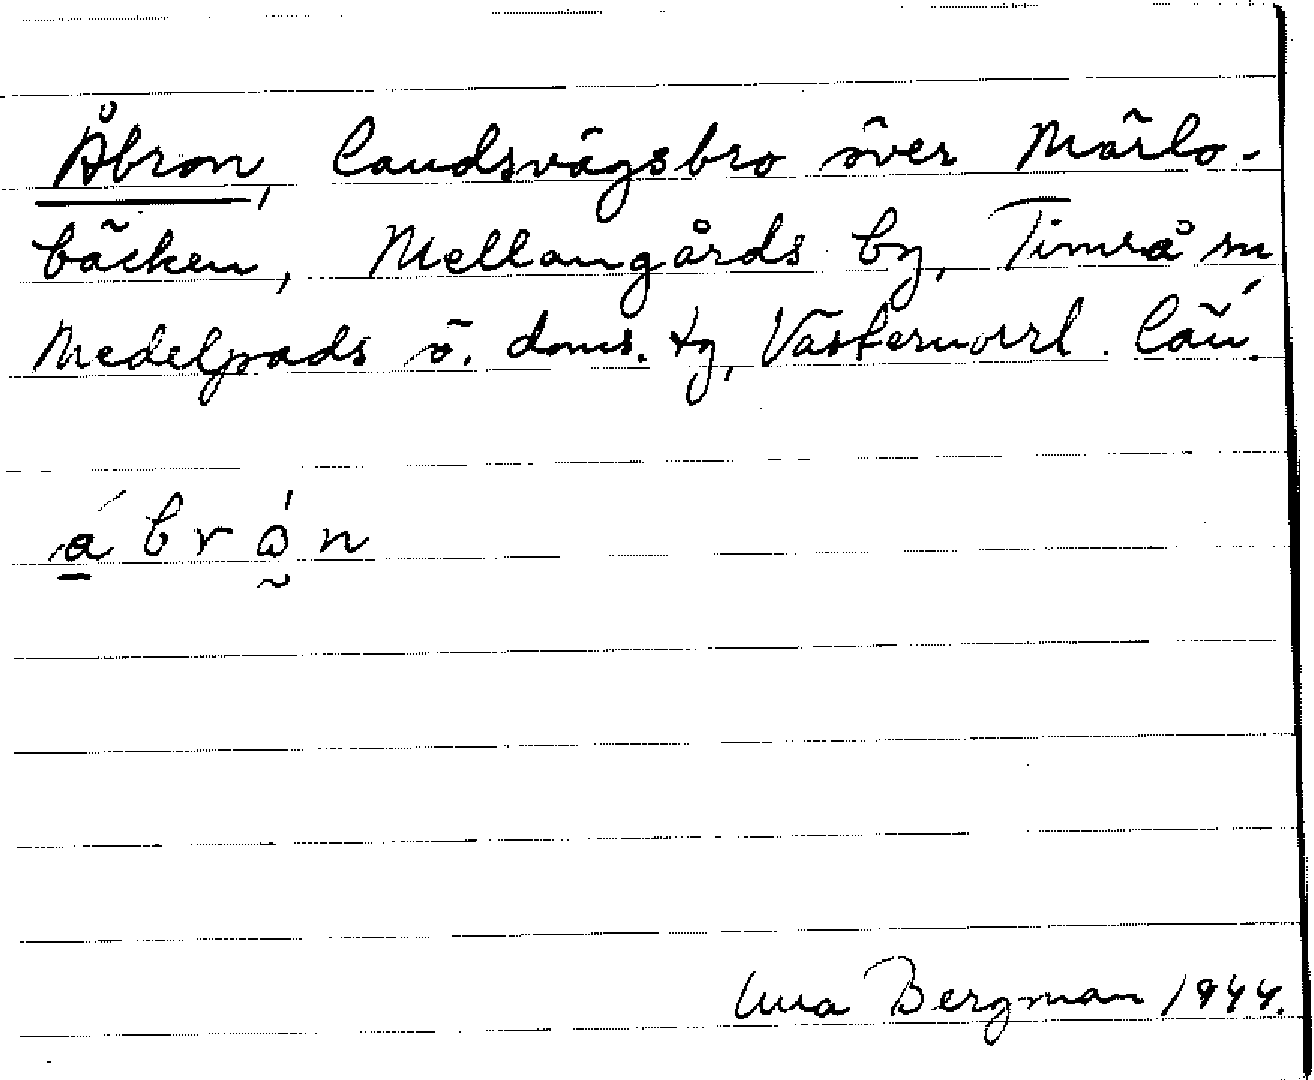 Åbron, landsvägsbro över Märlo-
bäcken, Mellangårds by, Timrå sn
Medelpads ö. doms. tg, Västernorrl. län.
åbrån
Bergman 1944.